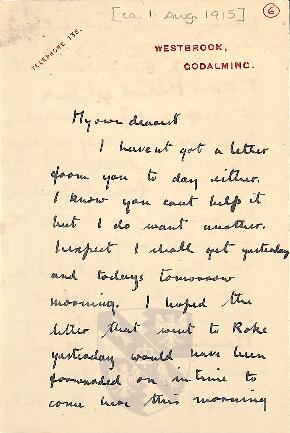 [ca. 1 Aug. 1915]
6
TELEPHONE 135.
WESTBROOK,
GODALMING.
My own dearest
I havent got a letter
from you to day either.
I know you cant help it
but I do want another.
I expect I shall get yesterdays
and todays tomorrow
morning. I hoped the
letter that went to Roke
yesterday would have been
forwarded on in time to
come here this morning